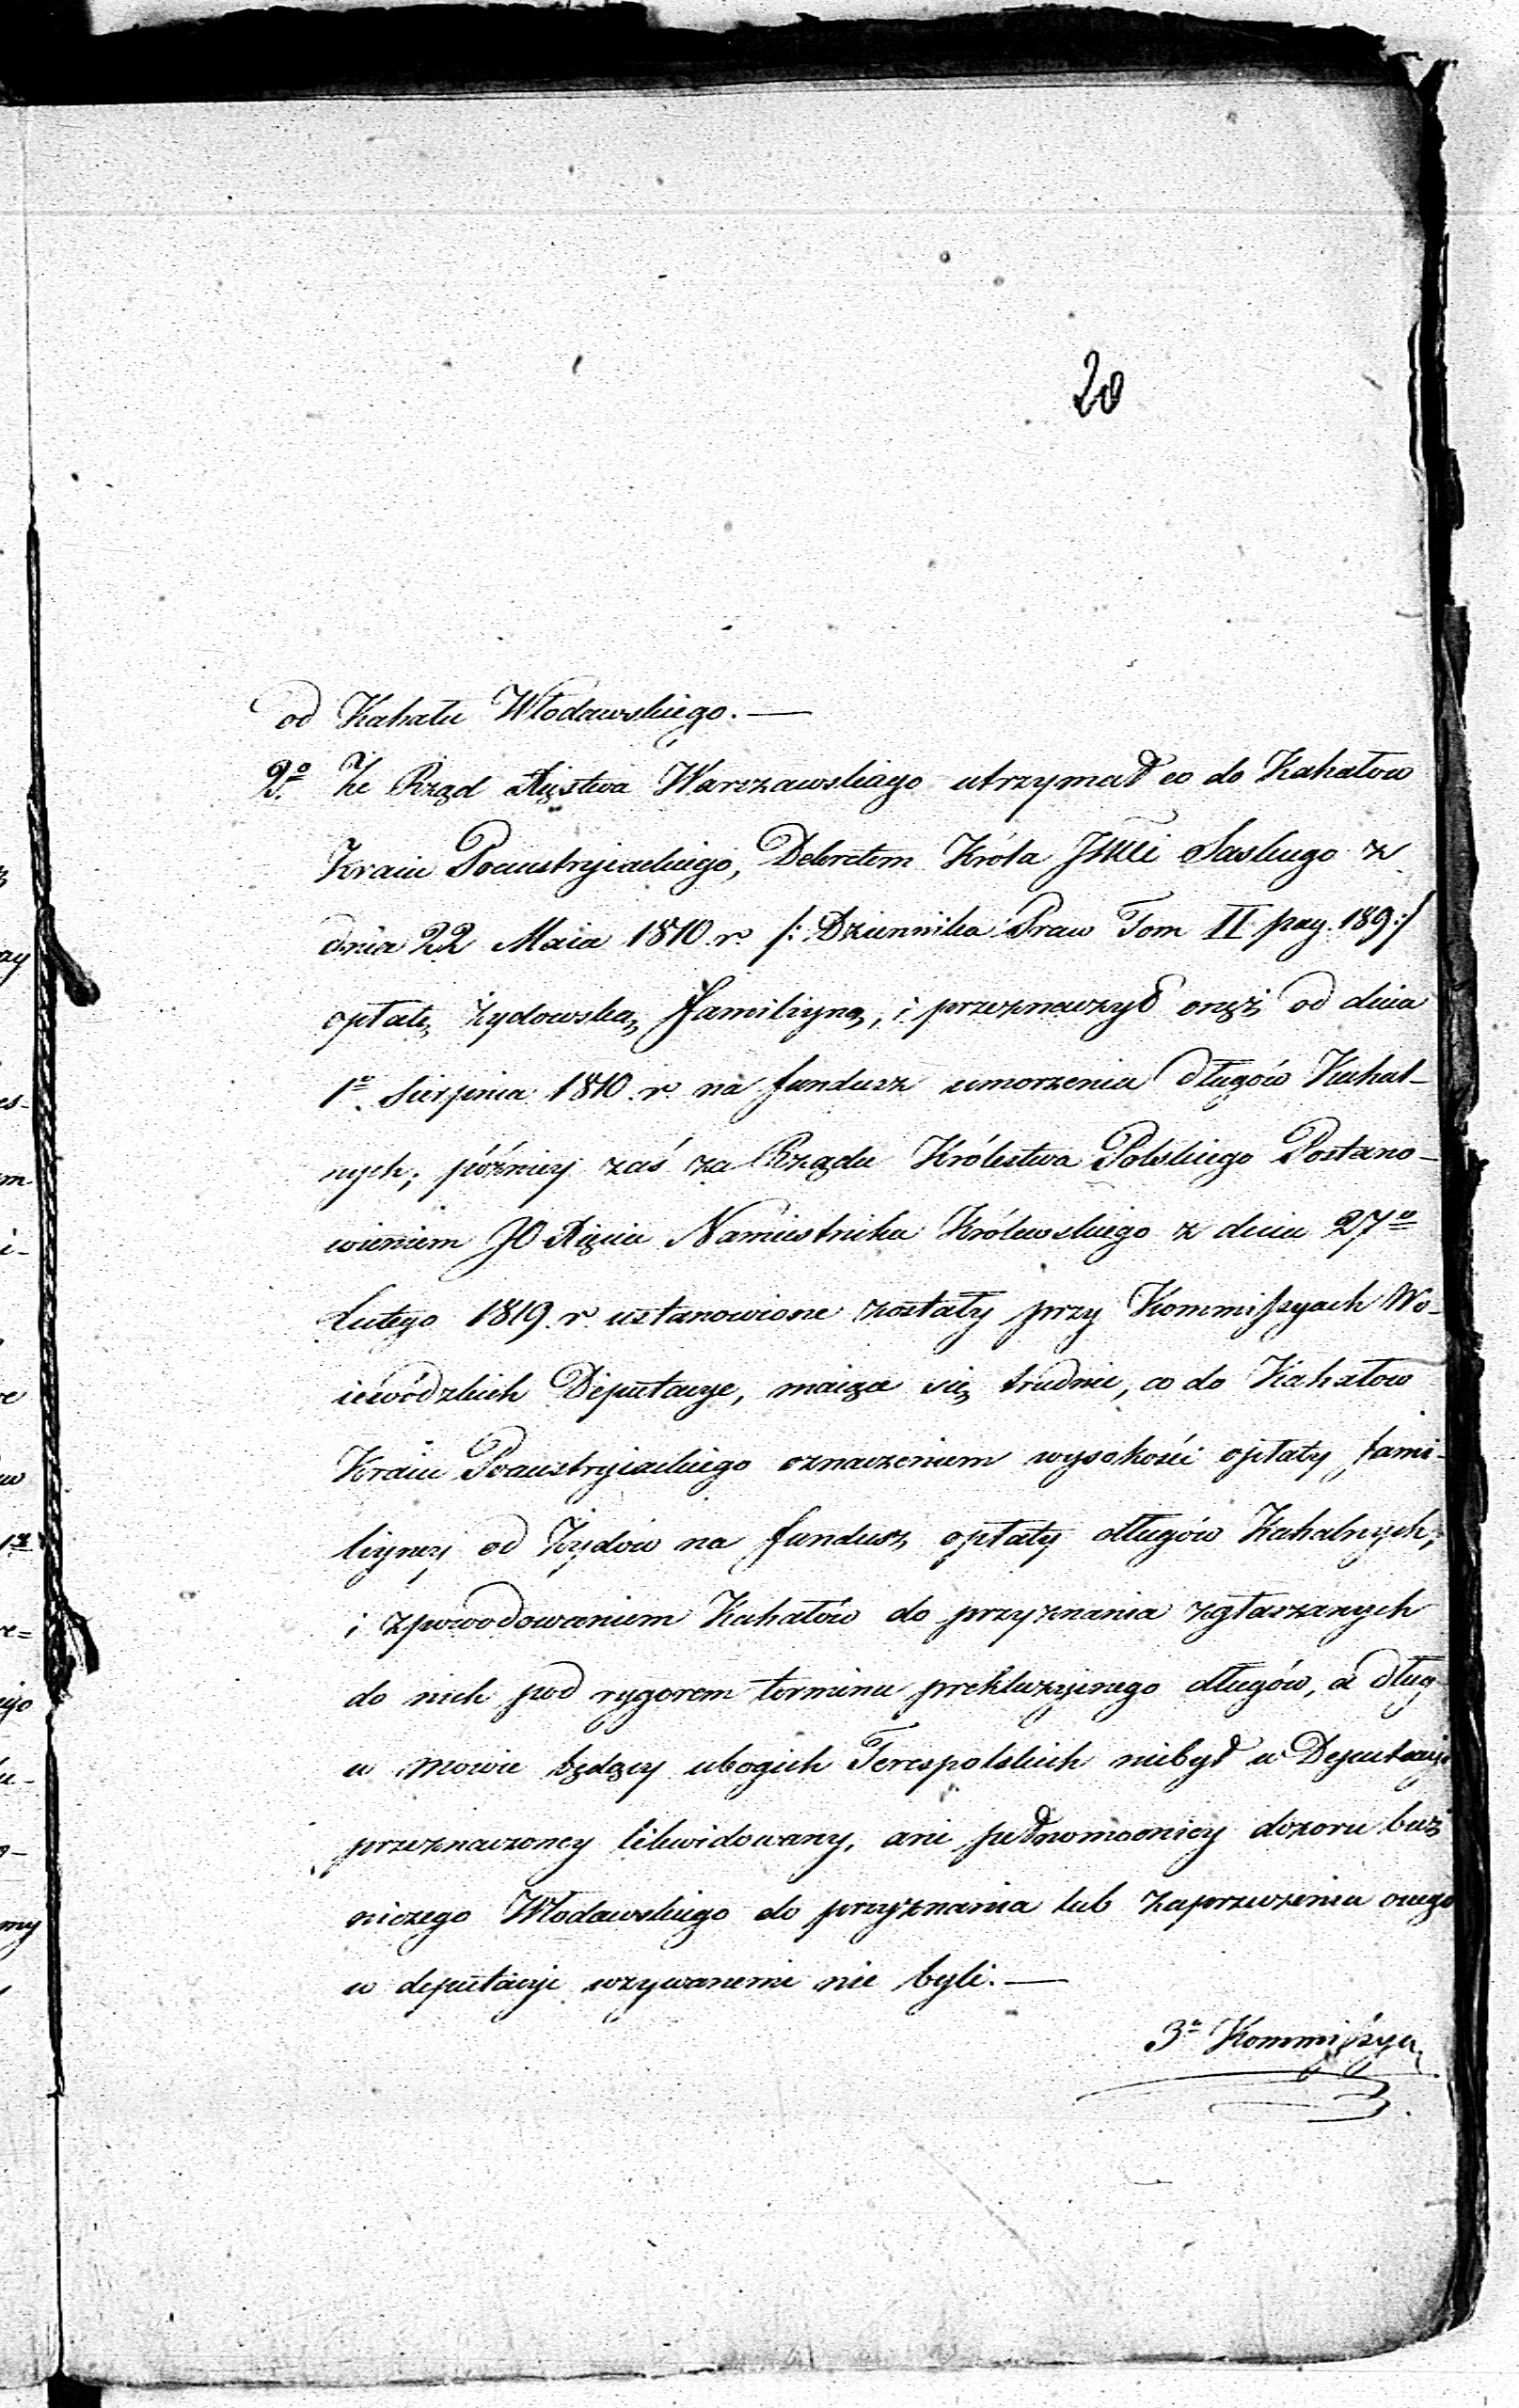 20
od Kahału Włodawskiego. —
2o. Że Rząd Xięstwa Warszawskiego utrzymał co do Kahałow
Kraiu Poaustryiackiego, Dekretem Króla JMci Saskiego z
dnia 22 Maia 1810 r. /: Dziennika Praw Tom II pag. 189 :/
opłatę żydowską familiyną, i przeznaczył onęż od dnia
1o. Sierpnia 1810. r. na fundusz umorzenia długów Kahal-
nych; późniey zaś za Rządu Królestwa Polskiego Postano-
wieniem JO Xięcia Namiestnika Królewskiego z dnia 27o
Lutego 1819. r. ustanowione zostały przy Kommissyach Wo-
iewódzkich Deputacye, maiące się trudnić, co do Kahałow
Kraiu Poaustryiackiego oznaczeniem wysokości opłaty fami-
liyney od Żydów na fundusz opłaty długów Kahalnych,
i spowodowaniem Kahałów do przyznania zgłaszanych
do nich pod rygorem terminu prekluzyinego długów, a dług
w mowie będący ubogich Terespolskich niebył w Deputacyi
przeznaczoney likwidowany, ani pełnomocnicy dozoru boż
niczego Włodawskiego do przyznania lub zaprzeczenia onego
w deputacyi wzywanemi nie byli. —
3o Kommissya